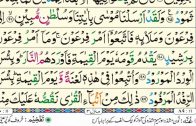 وَلَقَدْ اَرْسَلْنَا مُوْسٰى بِاٰيٰتِنَا وَسُلْطٰنٍ مُّبِيْنٍ
فِرْعَوْنَ وَمَلَا۟ئِهٖ فَاتَّبَعُوْٓا اَمْرَ فِرْعَوْنَ وَمَآ اَمْرُ فِرْعَوْنَ
بِرَشِيْدٍ يَقْدُمُ قَوْمَهٗ يَوْمَ الْقِيٰمَةِ فَاَوْرَدَهُمُ النَّارَ وَبِئْسَ
الْوِرْدُ الْمَوْرُوْدُ وَاُتْبِعُوْا فِيْ هٰذِهٖ لَعْنَةً وَّيَوْمَ الْقِيٰمَةِ بِئْسَ
الرِّفْدُ الْمَرْفُوْدُ ذٰلِكَ مِنْ اَنْۢبَآءِ الْقُرٰى نَقُصُّهٗ عَلَيْكَ